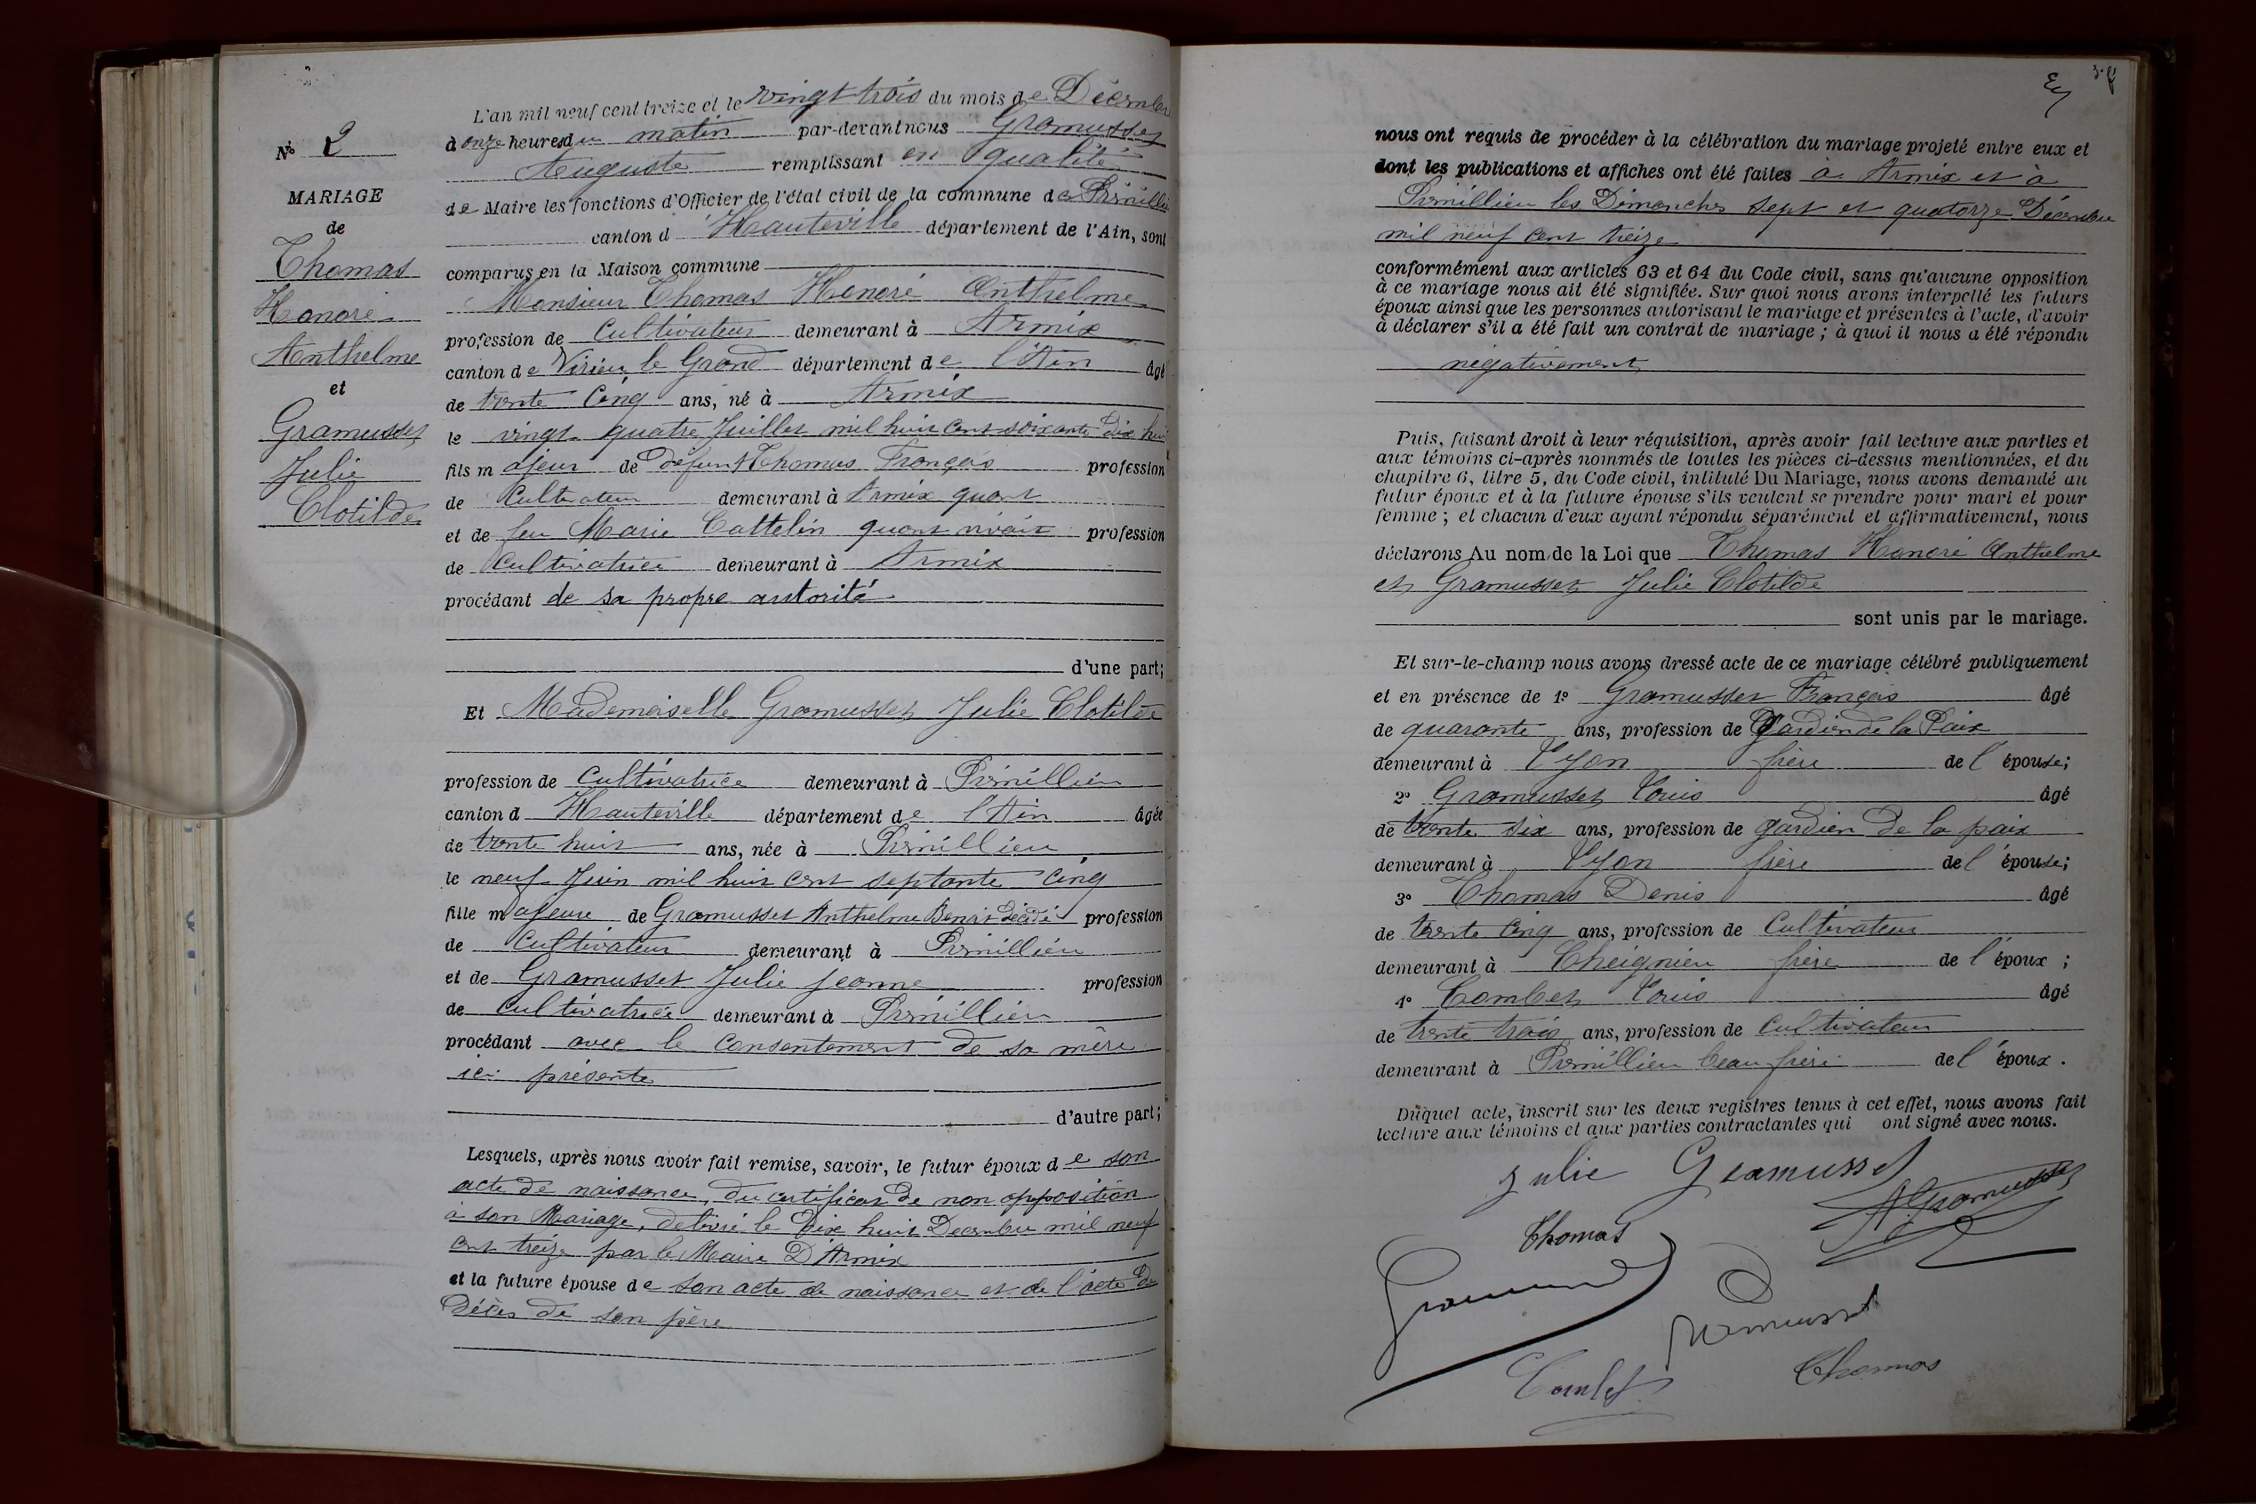 N° 2
MARIAGE
de
Thomas
Honoré
Anthelme
et
Gramusset
Julie
Clotilde
L'an mil neuf cent treize et le vingt trois du mois de Décembre
à onze heures du matin par-devant nous Gramusset
Auguste remplissant en qualité
de Maire les fonctions d'Officier de l'état civil de la commune de Prémillieu
canton d'Hauteville département de l'Ain, sont
comparus en la Maison commune
Monsieur Thomas Honoré Anthelme
profession de Cultivateur demeurant à Armix
canton de Virieu le Grand département de l'Ain âgé
de trente cinq ans, né à Armix
le vingt-quatre Juillet mil huit cent soixante dix huit
fils majeur de défunt Thomas François profession
de Cultivateur demeurant à Armix quant
et de feu Marie Cattelin quant vivait profession
de Cultivatrice demeurant à Armix
procédant de sa propre autorité
d'une part;
Et Mademoiselle Gramusset Julie Clotilde
profession de Cultivatrice demeurant à Prémillieu
canton d Hauteville département de l'Ain âgée
de trente huit ans, née à Prémillieu
le neuf Juin mil huit cent septante cinq
fille majeure de Gramusset Anthelme Benoit Décédé profession
de Cultivateur demeurant à Prémillieu
et de Gramusset Julie Jeanne profession
de Cultivatrice demeurant à Prémillieu
procédant avec le consentement de sa mère
ici présente
d'autre part;
Lesquels, après nous avoir fait remise, savoir, le futur époux de son
acte de naissance, du certificat de non opposition
à son Mariage, délivré le dix huit Decembre mil neuf
cent treize par le Maire D'Armix
et la future épouse de son acte de naissance et de l'acte de
décès de son père
nous ont requis de procéder à la célébration du mariage projeté entre eux et
dont les publications et affiches ont été faites à Armix et à
Prémillieu les Dimanches sept et quatorze Décembre
mil neuf cent treize
conformément aux articles 63 et 64 du Code civil, sans qu'aucune opposition
à ce mariage nous ait été signifiée. Sur quoi nous avons interpellé les futurs
époux ainsi que les personnes autorisant le mariage et présentes à l'acte, d'avoir
à déclarer s'il a été fait un contrat de mariage ; à quoi il nous a été répondu
négativement
Puis, faisant droit à leur réquisition, après avoir fait lecture aux parties et
aux témoins ci-après nommés de toutes les pièces ci-dessus mentionnées, et du
chapitre 6, titre 5, du Code civil, intitulé Du Mariage, nous avons demandé au
futur époux et à la future épouse s'ils veulent se prendre pour mari et pour
femme ; et chacun d'eux ayant répondu séparément et affirmativement, nous
déclarons Au nom de la Loi que Thomas Honoré Anthelme
et Gramusset Julie Clotilde
sont unis par le mariage.
Et sur-le-champ nous avons dressé acte de ce mariage célébré publiquement
et en présence de 1° Gramusset François âgé
de quarante ans, profession de Gardien de la Paix
demeurant à Lyon frère de l'épouse;
2° Gramusset Louis âgé
de trente six ans, profession de gardien de la paix
demeurant à Lyon frère de l'épouse;
3° Thomas Denis âgé
de trente cinq ans, profession de Cultivateur
demeurant à Cheignieu frère de l'époux ;
4° Combet Louis âgé
de trente trois ans, profession de Cultivateur
demeurant à Prémillieu beau frère de l'époux.
Duquel acte, inscrit sur les deux registres tenus à cet effet, nous avons fait
lecture aux témoins et aux parties contractantes qui ont signé avec nous.
Julie Gramusset
A. Gramusset
Thomas
Gramusset
Gramusset
Combet
Thomas